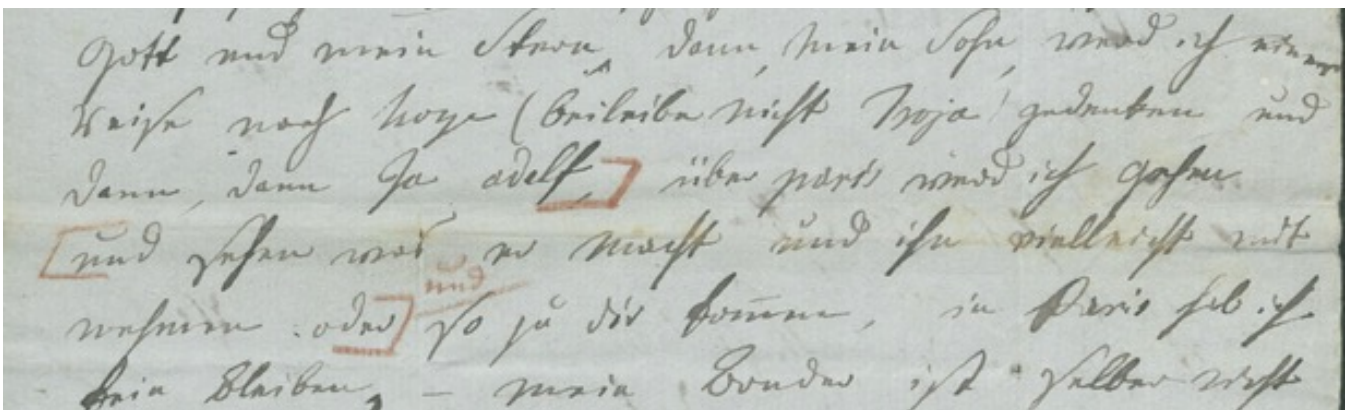 Gott und mein Stern, dann, mein Sohn, werd ich einer
Reise nach Troye (beileibe nicht Troja) gedenken und
dann, dann Ja adolf, über paris werd ich gehen
und sehen was er macht und ihn vielleicht mit
und
nehmen. oder so zu dir kommen, in Paris hab ich
kein bleiben, – mein Bruder ist selber nicht